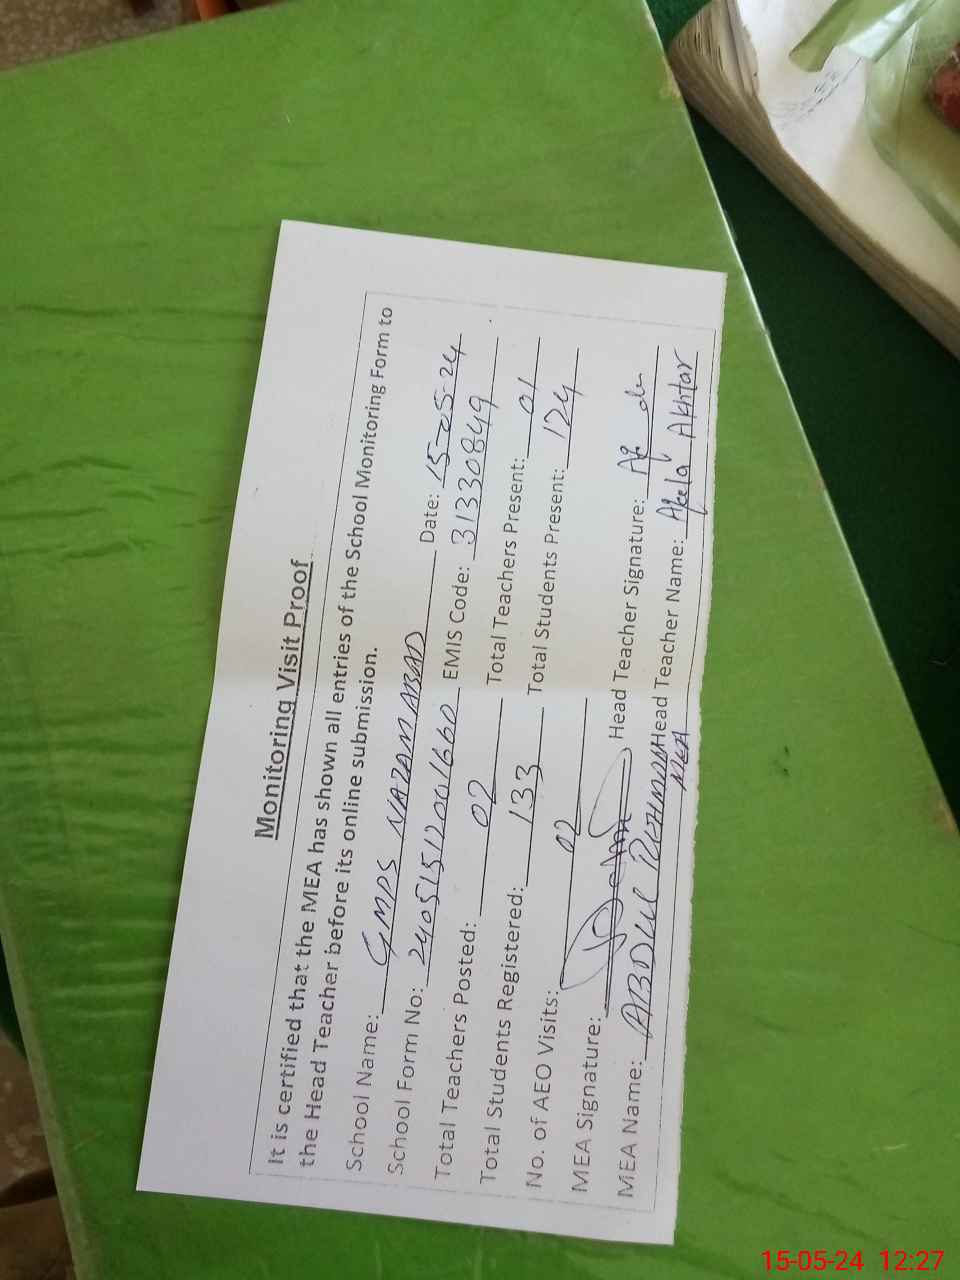 Monitoring Visit Proof
It is certified that the MEA has shown all entries of the School Monitoring Form to
the Head Teacher before its online submission.
School Name: GMPS NAZAMABAD Date: 15-05-24
School Form No: 240515112001660 EMIS Code: 31330849
Total Teachers Posted: 02 Total Teachers Present: 01
Total Students Registered: 133 Total Students Present: 124
No. of AEO Visits: 02
MEA Signature: Head Teacher Signature:
MEA Name: ABDUL REHMAN Head Teacher Name: Akhtar
MEA
15-05-24 12:27